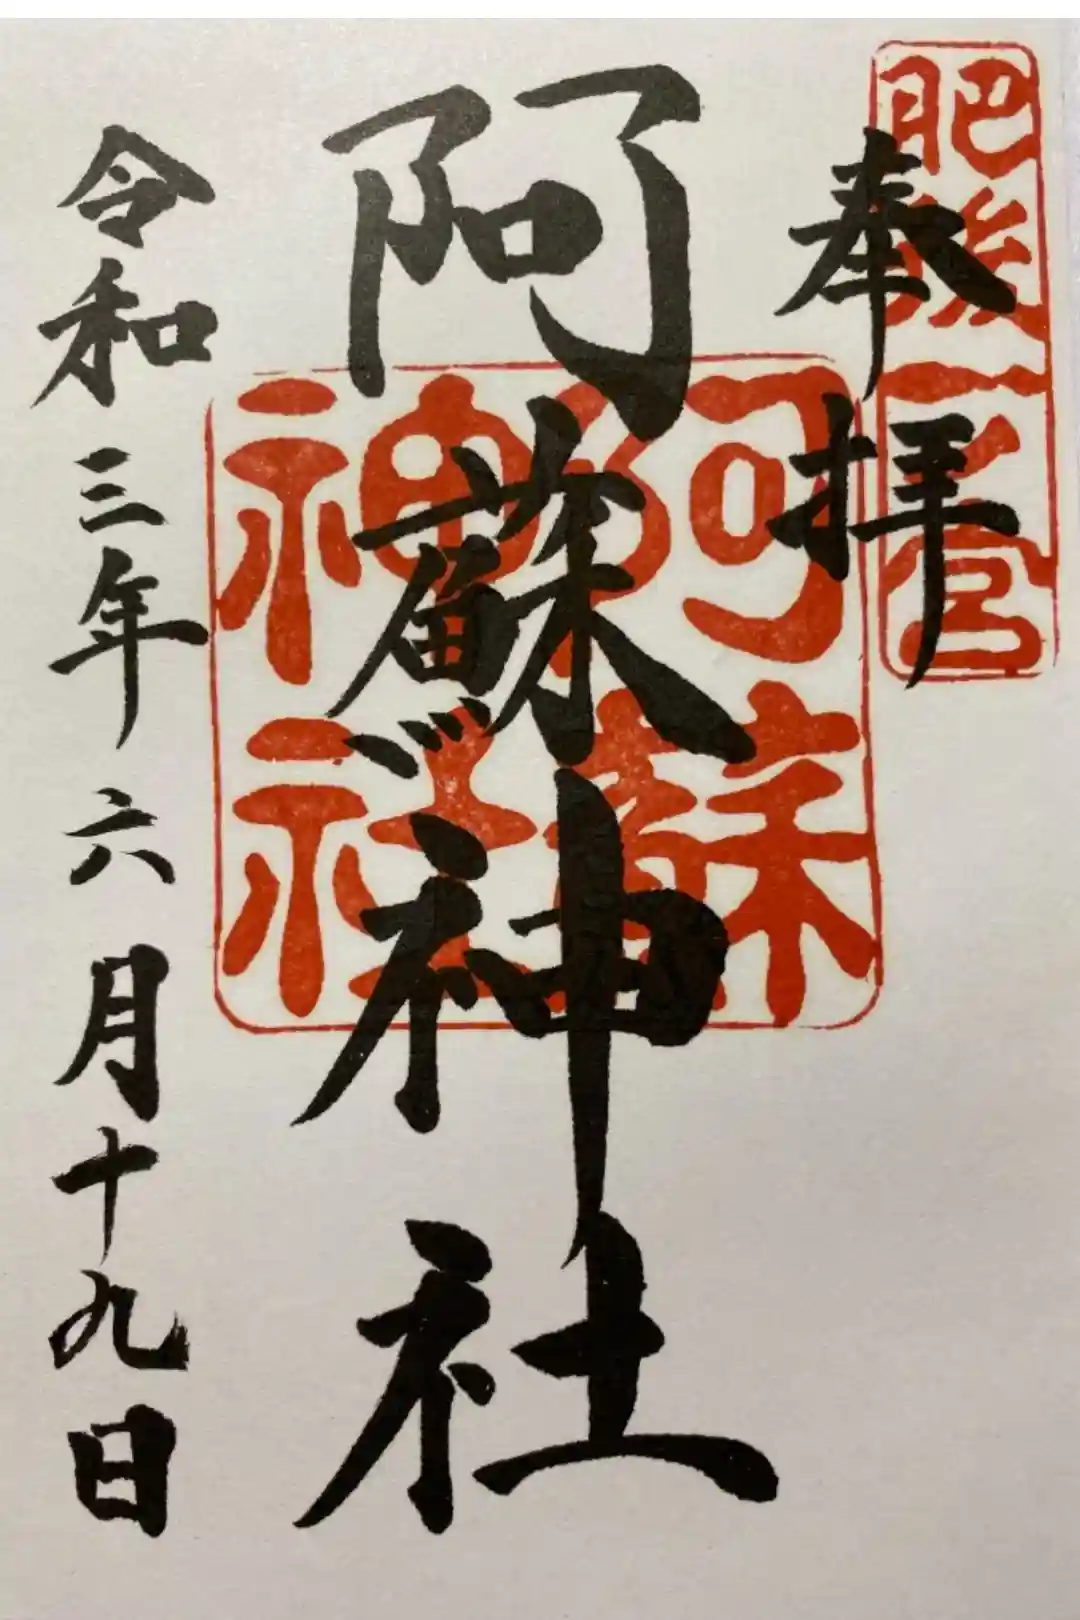 肥後一之宮
奉拝
阿蘇神社
阿蘇神社
令和三年六月十九日